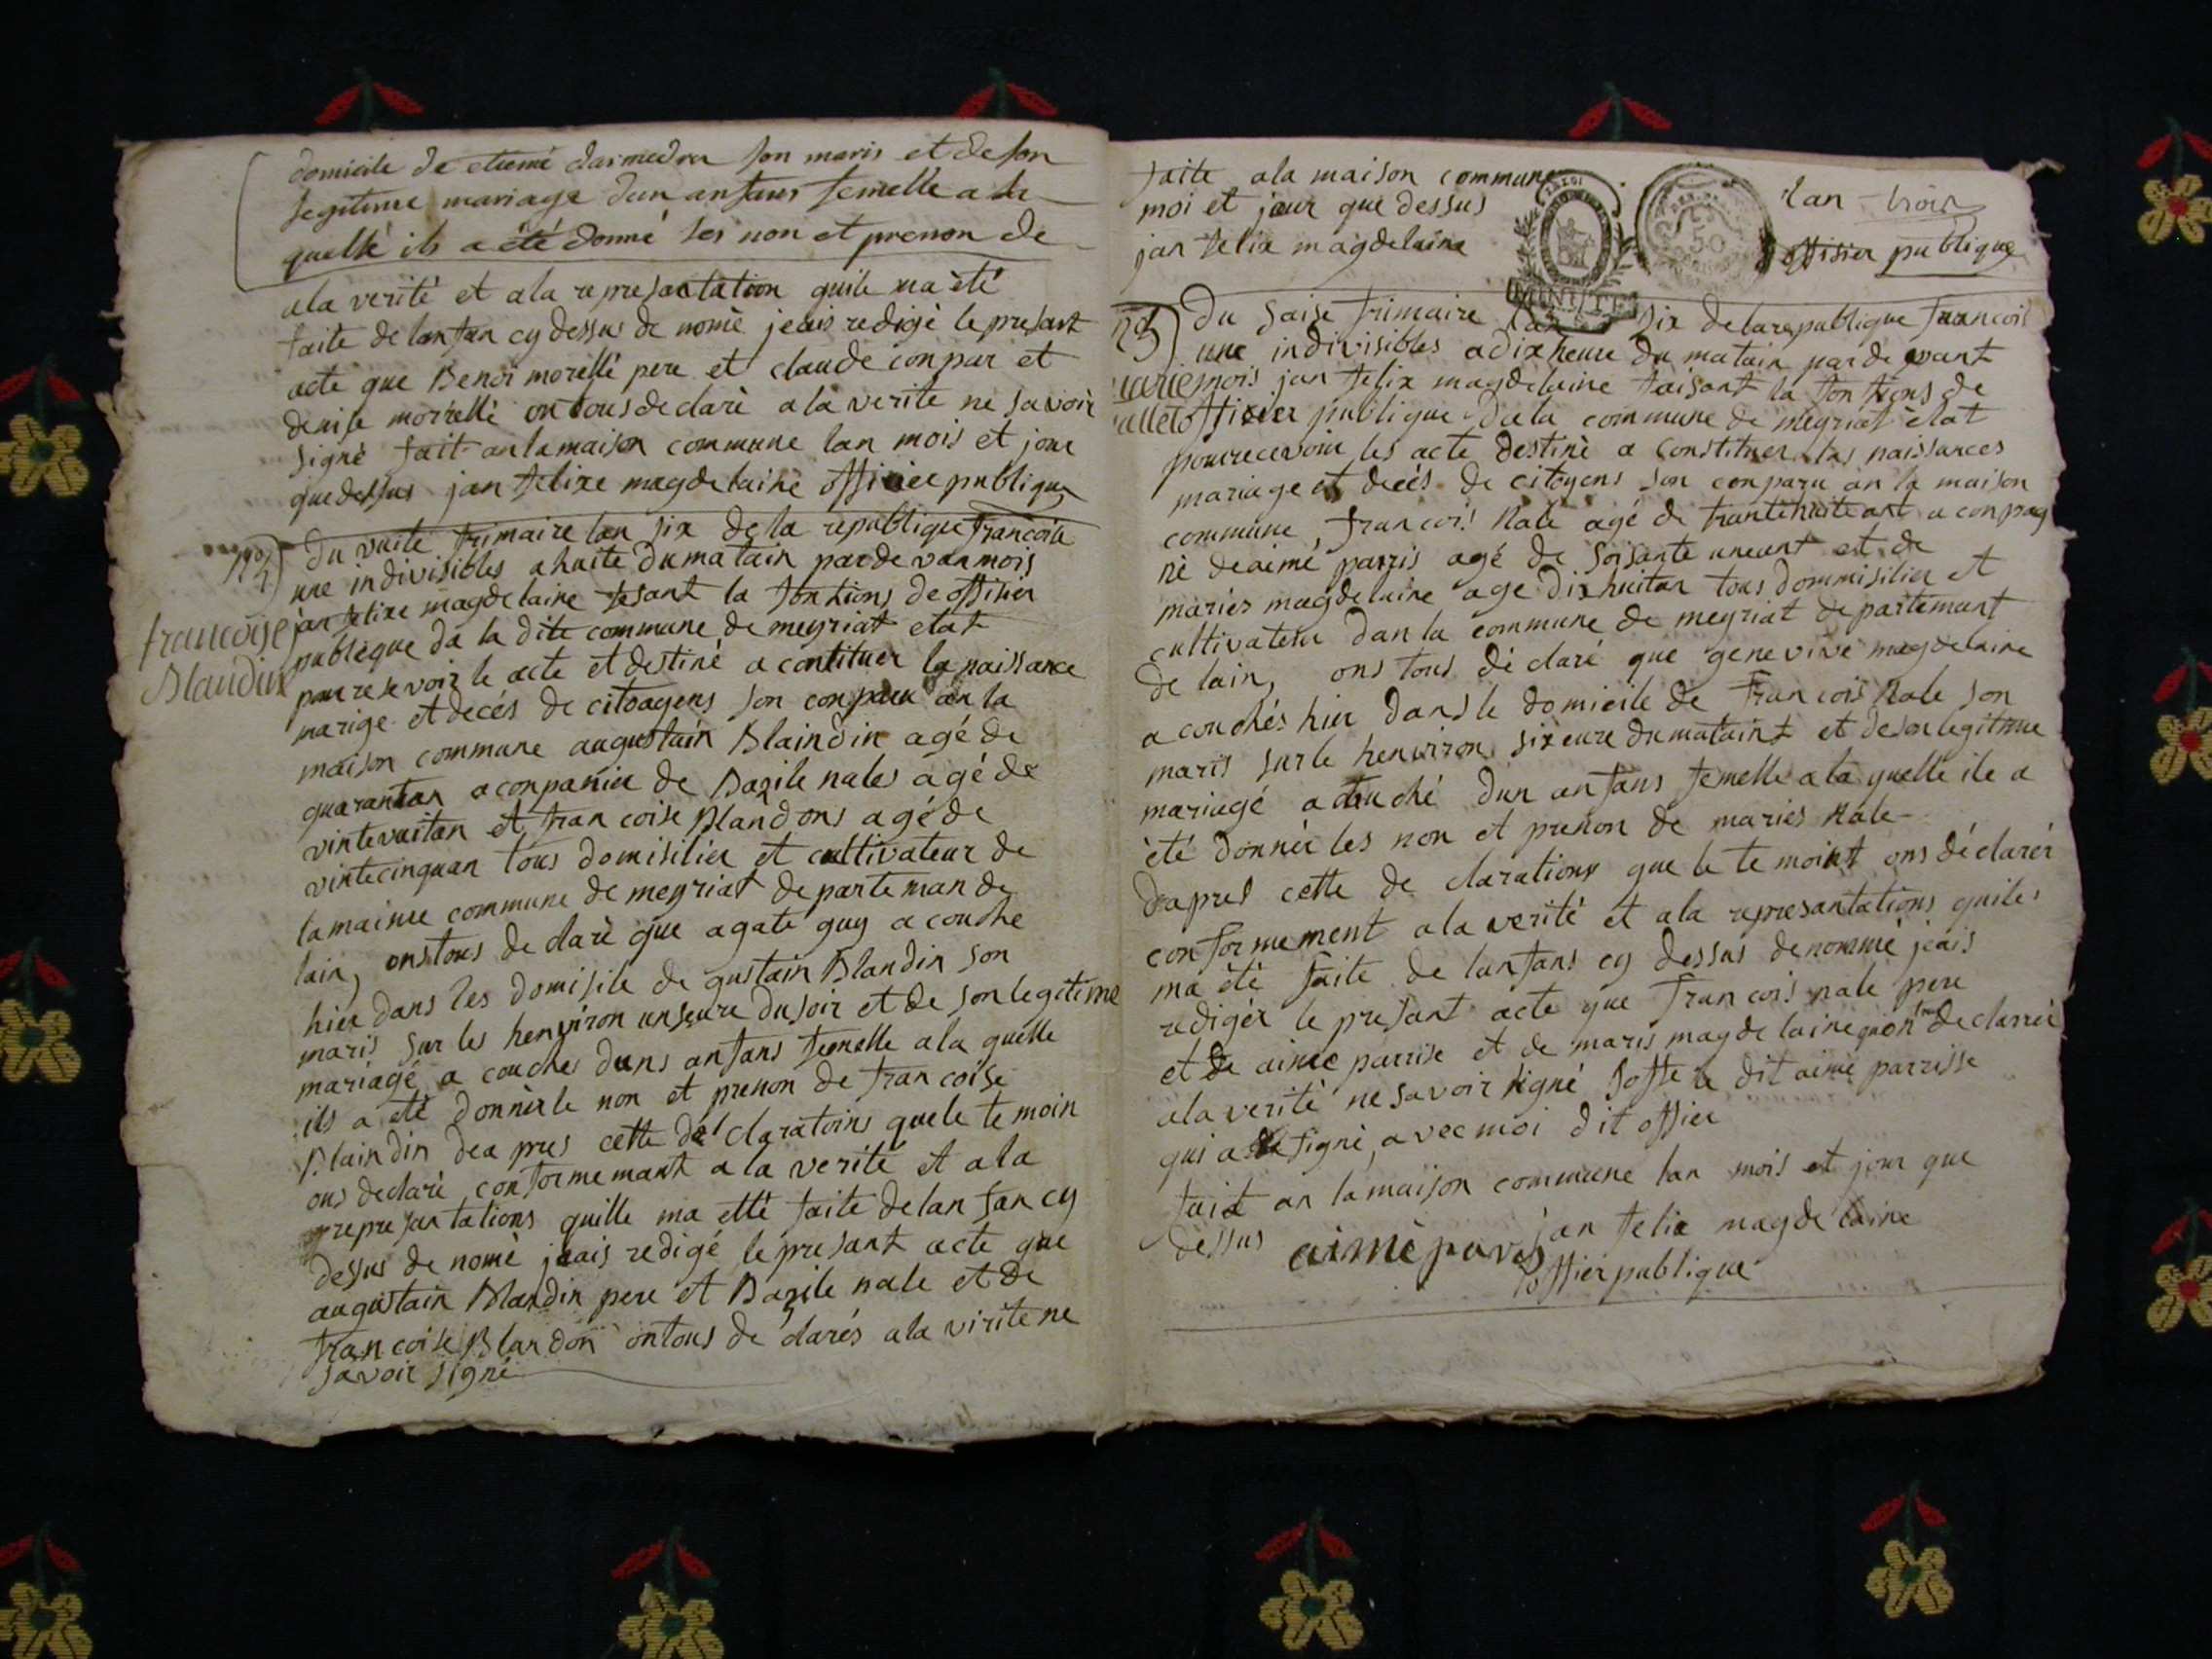 domicile de etiené darmedon son maris et deson
legitime mariage dun anfans femelle a la
quellé ils a été donné les non et prenon de
ala verité et ala represantation quile ma été
faite de lanfan cy dessus de nomè jeais redigé le presant
acte que Benoi morellé pere et claude conpar et
denise morrellé on tous declaré a la verite ne savoir
signé fait an la maison commune lan mois et jour
quedessus jan felixe magdelaine officiee publique
n°2) Du vuité frimaire lan six de la republique francoise
une indivisibles a huite du matain parde van mois
jan felixe magdelaine fesant la fontions de offisier
francoise
Blandin
publeque da la dite commune de meyriat etat
pour resevoir le acte et destiné a contituer la naissance
marige et decés de citoagens son conparu an la
maison commune augustain Blaindin agé de
quarantan aconpanier de Bazile nales agé de
vintevuitan et francoise Blandons agé de
vintecinquan tous domisilier et cultivateur de
la maime commune de meyriat departeman de
lain, onstous de claré que agate guy a couche
hier dans les domisile de gustain Blandin son
maris sur les henviron unseure du soir et de son legitime
mariagé a couches duns anfans femelle ala quelle
ils a eté donnér le non et prenon de francoise
Blaindin dea pres cette de claratoins que le te moin
ons declaré conformemant a la verité et ala
represantations quille ma etté faite delan fan cy
dessus de nomé jeais redigé le presant acte que
augustain Blandin pere et Bazile nale et de
francoise Blandon ontous de clarés a la virite ne
savoir signé
faite ala maison commune lan trois
moi et jour que dessus
jan felix magdelaine offisier publique
n°3) Du saise frimaire lan six de la republique francois
une indivisibles a dix heure du matain par de vant
marie
nallet
mois jan felix magdelaine faisant la fontions de
offisier publique dela commune de meyriat état
pour recevoir les acte destiné a constituer las naissances
mariage et decés de citoyens son conparu an la maison
commune, francois Nale agé de trantehuite ant a conpag
né de aimé parris agé de soisante uneant et de
mariés magdelaine age dixhuitan tous dommisilier et
cultivateur dan la commune de meyriat departemant
de lain, ons tous dé claré que genevive magdelaine
a couchés hier dans le domicile de francois Nale son
maris sur le henviron sixeure du mataint et de son legitime
mariagé a couché dun anfans femelle a la quelle ile a
été donnér les non et prenon de mariés Nale
dapres cette de clarations que le te moint ons déclarér
conformement ala verité et ala represantations quiles
ma été faite de lanfans cy dessus denommé jeais
redigér le presant acte que francois nale pere
et de aimé parrise et de maris magdelaine quon tous declarrér
ala verité ne savoir signé soffe le dit aimé parrisse
qui a signé, avec moi dit offier
fait an la maison commune lan mois et jour que
dessus jan felix magdelaine
aimé paris
offier publique